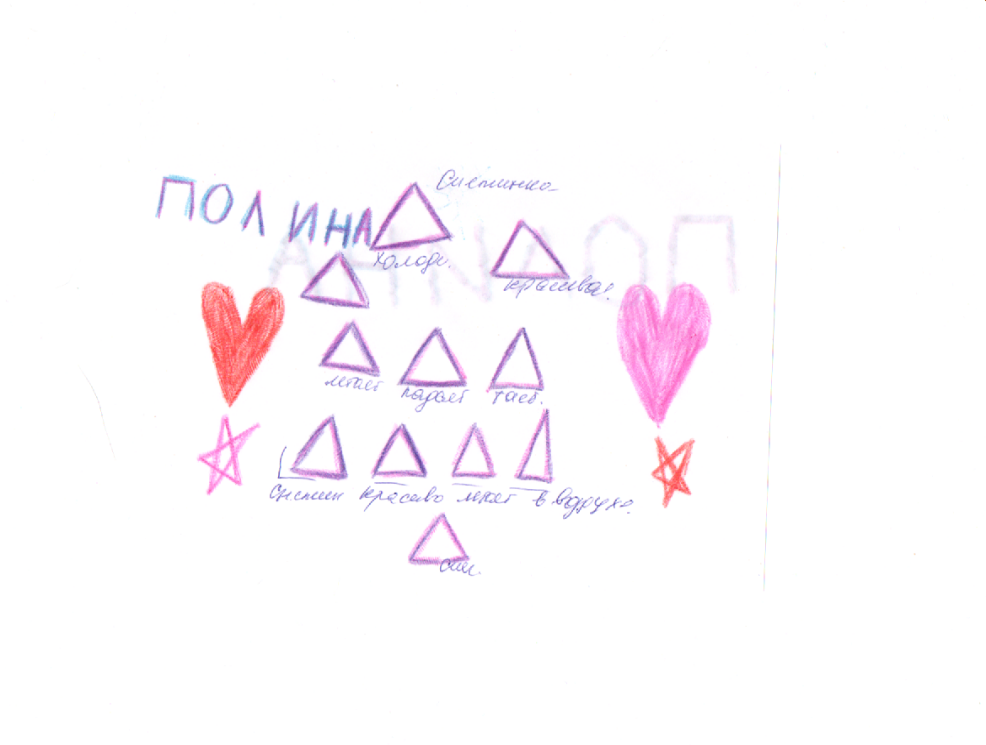 ПОЛИНА
Снежинка
холодн.
красивая
летает падает тает.
Снежин красиво летает в воздухе.